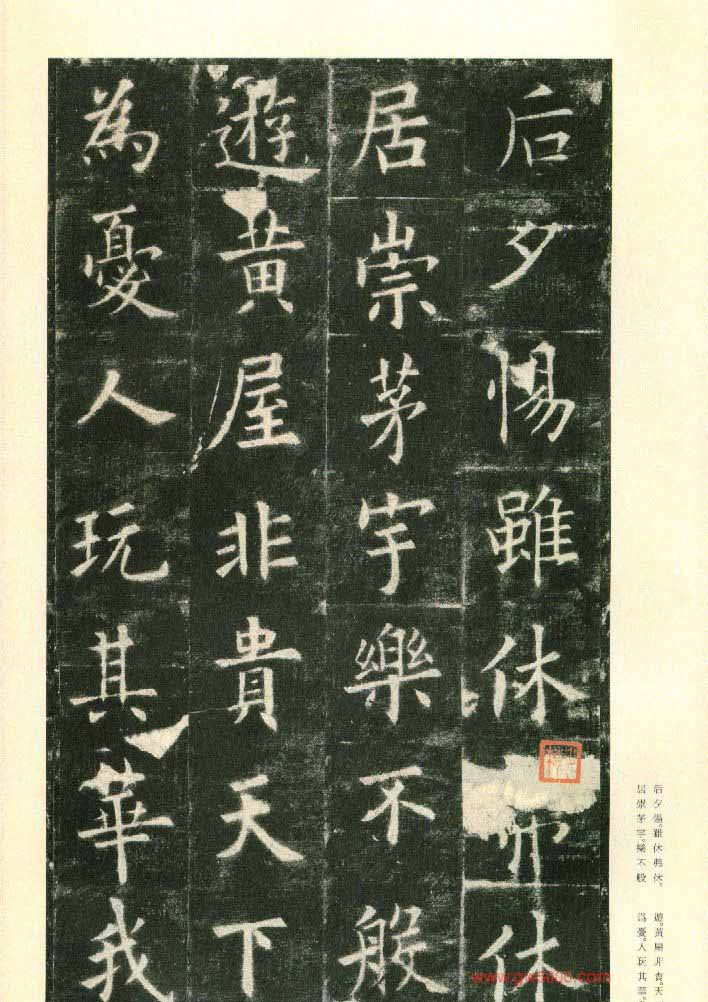 后夕惕雖休休
居崇茅宇樂不般
遊黃屋非貴天下
為憂人玩其華我
后夕惕。雖休弗休。
居崇茅宇。樂不般
遊。黃屋非貴。天
爲憂。人玩其華。